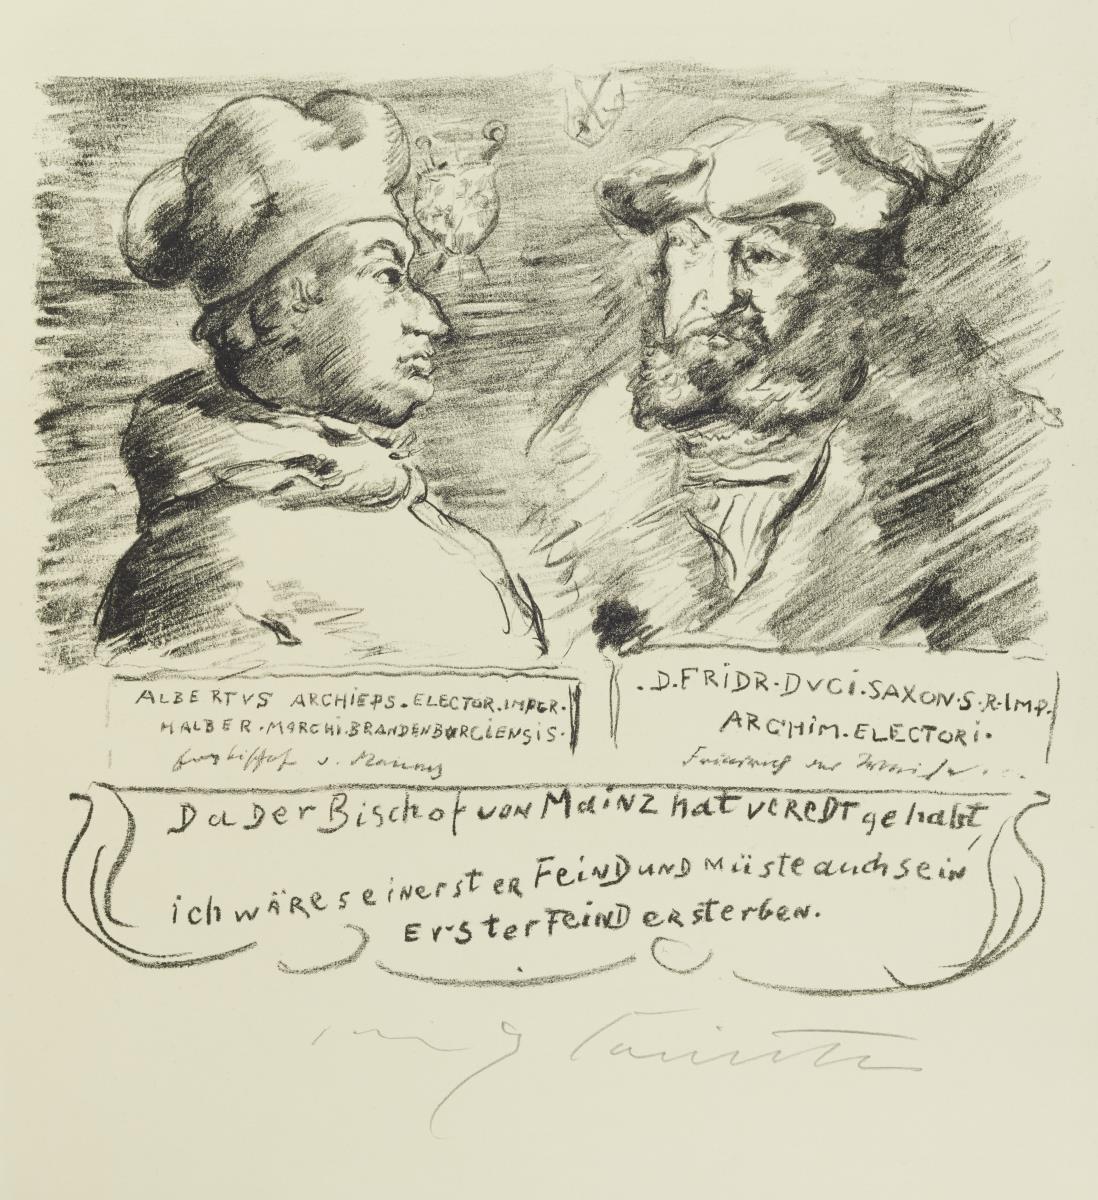 ALBERTVS ARCHIEPS. ELECTOR. IMPER.
HALBER. MARCHI. BRANDENBURGIENSIS.
Erzbischof v. Mainz
. D. FRIDR. DVCI. SAXON. S. R. IMP.
ARCHIM. ELECTORI.
Friedrich der Weise
Da Der Bischof von Mainz hat veredt gehabt,
ich wäre sein erster Feind und müste auch sein
Erster Feind ersterben.